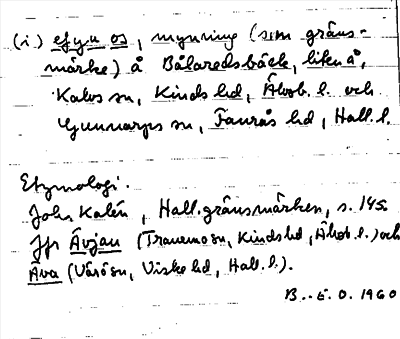 (i.) efyu os, mynning (som gräns-
märke) å Bålaredsbäck, likn å,
Kalvs sn, Kinds hd, Älvsb. l. och
Gunnarps sn, Faurås hd, Hall. l.
Etymologi.
John Kalén, Hall. gränsmärken, s. 145.
Jfr Åvjau (Tranemo sn, Kinds hd, Älvsb. l.) och
Åva (Värö sn, Viske hd, Hall. l.).
1960